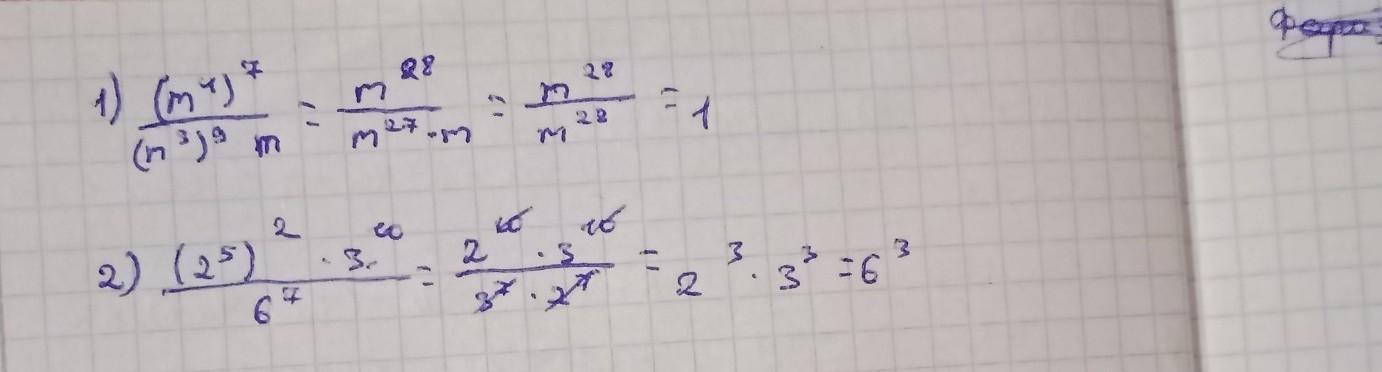 1) (m⁴)⁷ / (m³)⁹ m = m²⁸ / m²⁷ · m = m²⁸ / m²⁸ = 1
2) (2⁵)² · 3¹⁰ / 6⁷ = 2¹⁰ · 3¹⁰ / 3⁷ · 2⁷ = 2³ · 3³ = 6³